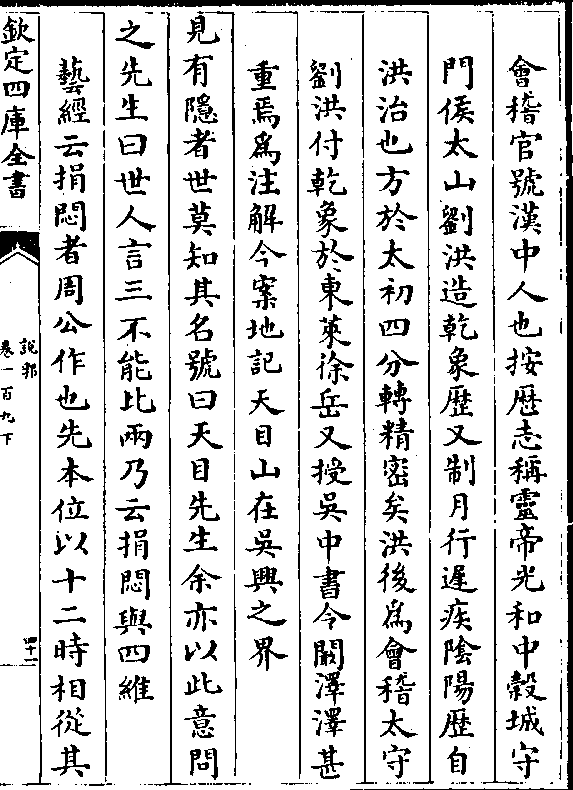 會稽官號漢中人也按歴志稱靈帝光和中糓城守
門侯太山劉洪造乾象歴又制月行遲疾隂陽歴自
洪治也方於太初四分轉精密矣洪後為㑹稽太守
劉洪付乾象於東萊徐岳又授吳中書令闞澤澤甚
重焉為注解今案地記天目山在吳興之界
見有隱者世莫知其名號曰天目先生余亦以此意問
之先生曰世人言三不能比兩乃云捐悶與四維
藝經云捐悶者周公作也先本位以十二時相從其
欽定四庫全書
說郛
卷一百九下
四十一